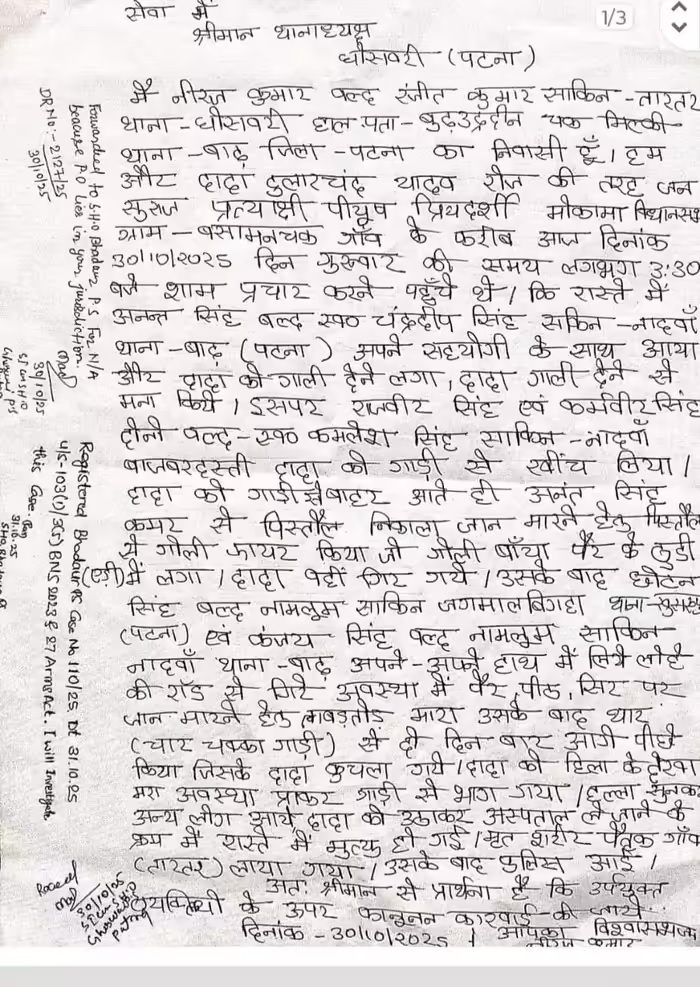 सेवा में
श्रीमान थानाध्यक्ष
1/3
घोसवरी (पटना)
मैं नीरज कुमार वल्द रंजीत कुमार साकिन - तारतर
थाना - घोसवरी हाल पता - बुढ़उद्रदीन चक मिल्की
थाना - बाढ़ जिला - पटना का निवासी हूँ। हम
और दादा दुलारचंद यादव रोज की तरह जन
सुराज प्रत्याक्षी पीयूष प्रियदर्शी मोकामा विधानसभा
ग्राम - बसामनचक गाँव के करीब आज दिनांक
30/10/2025 दिन गुरूवार की समय लगभग 3:30
बजे शाम प्रचार करने पहुँचे थे। कि रास्ते में
अनन्त सिंह वल्द स्व० चंद्रदीप सिंह सकिन - नादवाँ
थाना - बाढ़ (पटना) अपने सहयोगी के साथ आया
और दादा को गाली देने लगा, दादा गाली देने से
मना किये। इसपर राजवीर सिंह एवं कर्मवीर सिंह
दोनो वल्द - स्व० कमलेश सिंह साकिन - नादवाँ
बाजबरदस्ती दादा को गाड़ी से खींच लिया।
दादा को गाड़ी से बाहर आते ही अनंत सिंह
कमर से पिस्तौल निकाला जान मारने हेतु पिस्तौल
से गोली फायर किया जो गोली बाँया पैर के लुडी
(एड़ी) में लगा। दादा वहीं गिर गये। उसके बाद छोटन
सिंह वल्द नामलुम साकिन जगमालबिगहा थाना -
(पटना) एवं कंजय सिंह वल्द नामलुम साकिन
नादवाँ थाना - बाढ़ अपने - अपने हाथ में लिये लोहे
की रॉड से गिरे अवस्था में पैर, पीठ, सिर पर
जान मारने हेतु ताबड़तोड़ मारा उसके बाद थार
(चार चक्का गाड़ी) से दो तिन बार आगे पीछे
किया जिसके दादा कुचला गये। दादा को हिला के देखा
मरा अवस्था प्राकर गाड़ी से भाग गया। हल्ला सुनकर
अन्य लोग आये दादा को उठाकर अस्पताल ले जाने के
क्रम में रास्ते में मुत्यु हो गई। मृत शरीर पैतृक गाँव
(तारतर) लाया गया। उसके बाद पुलिस आई।
अतः श्रीमान से प्रार्थना है कि उपर्युक्त
व्यक्तियों के ऊपर कानूनन कारवाई की जाये
दिनांक - 30/10/2025 आपका विश्वासभाजन
नीरज कुमार
Forwarded to S.H.O Bhadaur P.S For N/A
because P.O lies in your jurisdiction.
DR No:- 2127/25
30/10/25
30/10/25
Registered Bhadaur PS Case No 110/25. Dt 31.10.25
U/s - 103(1)/3(5) BNS 2023 & 27 Arms Act. I will Investigate
this case.
31.10.25
30/10/25